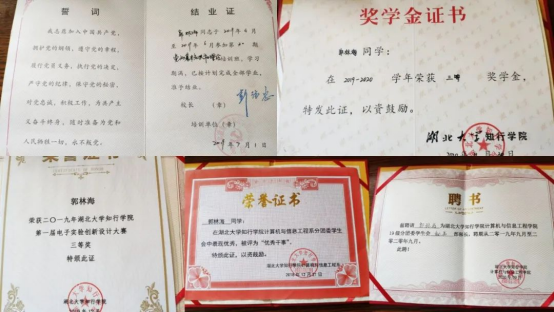 誓词
我志愿加入中国共产党，
拥护党的纲领，遵守党的章程，
履行党员义务，执行党的决定，
严守党的纪律，保守党的秘密，
对党忠诚，积极工作，为共产主
义奋斗终身，随时准备为党和
人民牺牲一切，永不叛党。
结业证
同志于2019年6月
至2019年6月参加第
培训班，学习
期满，已按计划完成全部学业，
准予结业。
校长（章）
培训单位（章）
2019年7月1日
奖学金证书
同学：
在2019-2020学年荣获三等奖学金，
特发此证，以资鼓励。
湖北大学知行学院
荣誉证书
郭林海
荣获二〇一九年湖北大学知行学院
第一届电子实验创新设计大赛
三等奖
特颁此证
湖北大学知行学院
荣誉证书
郭林海 同学：
在湖北大学知行学院计算机与信息工程系分团委学生
会中表现优秀，被评为“优秀干事”。
特颁此证，以资鼓励。
湖北大学知行学院计算机与信息工程系
聘书
为湖北大学知行学院计算机与信息工程学院
分团委学生会
聘期从二零一九年九月至二
零二零年九月。
此聘！
湖北大学知行学院